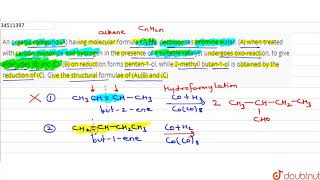 34511397
alkene CnH2n
An organic compound (A) having molecular formula C4H8 decolourises bromine water. (A) when treated
with carbon monoxide and hydrogen in the presence of a suitable catalyst undergoes oxo-reaction, to give
aldehydes (B) and (C). (B) on reduction forms pentan-1-ol, while 2-methyl butan-1-ol is obtained by the
reduction of (C). Give the structural formulae of (A),(B) and (C)
Hydroformylation
X ① CH3CH=CH-CH3 CO+H2 2 CH3-CH-CH2-CH3
but-2-ene Co(CO)8 CHO
② CH2=CH-CH2CH3 CO+H2
but-1-ene Co(CO)8
doubtnut